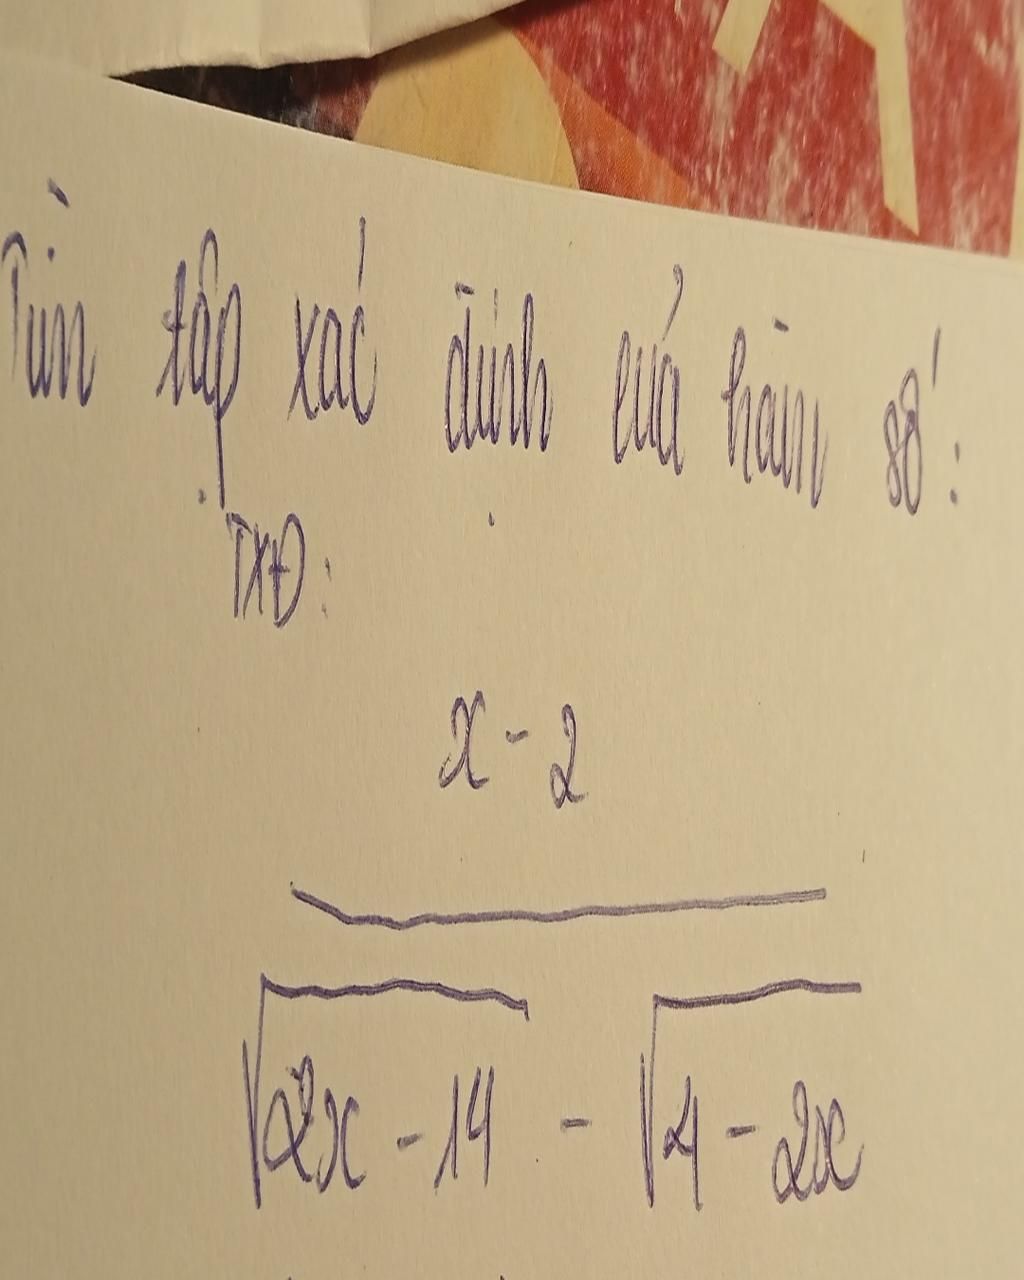 Tìm tập xác định của hàm số:
TXĐ:
x - 2
√2x - 14 - √4 - 2x